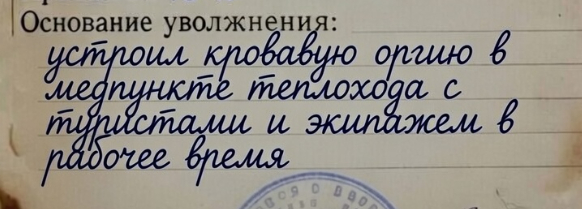 Основание уволжнения:
устроил кровавую оргию в
медпункте теплохода с
туристами и экипажем в
рабочее время